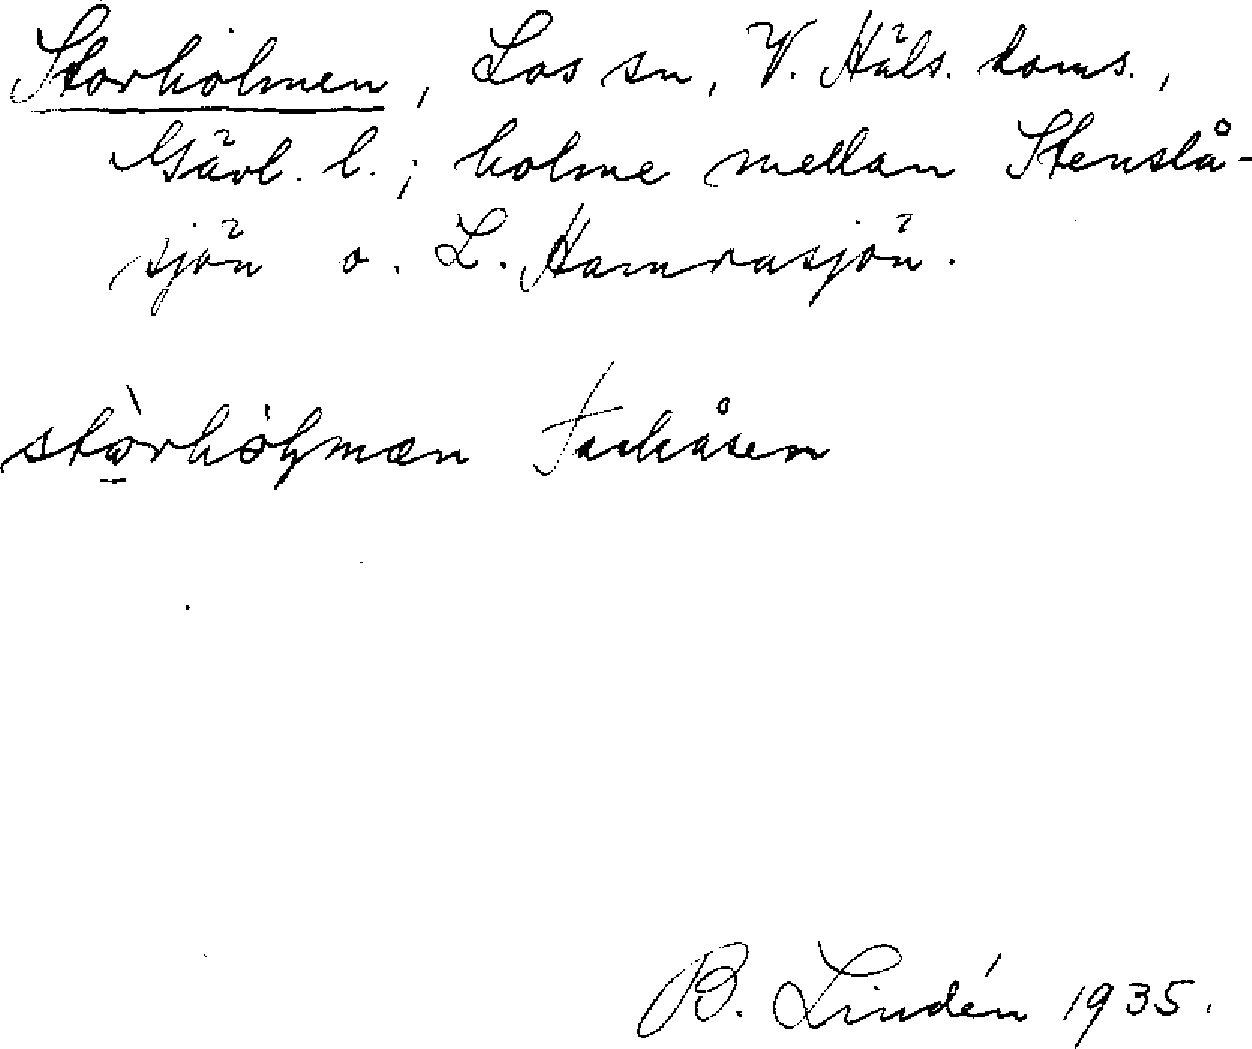 Storholmen, Los sn, V. Häls. doms.,
Gävl. l.; holme mellan Stenslå-
sjön o. L. Hamrasjön.
Tackåsen
B. Lindén 1935.